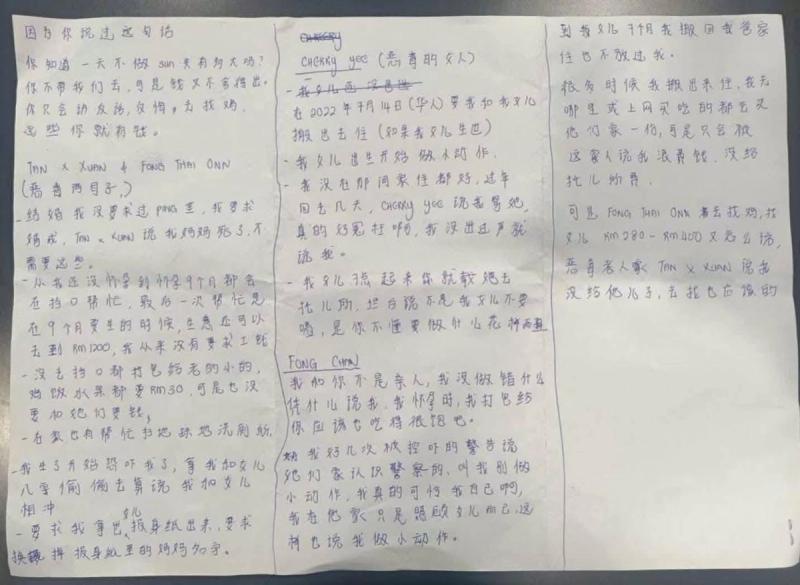 因为你说过这句话
你知道一天不做 sun 失有多大吗?
你不带我们去, 可是钱又不舍得出.
你只会讲废话, 反悔, 去找鸡,
这些你就有钱。
TAN X XUAN & FONG THAI ONN
(恶毒两母子,)
- 结婚我没要求过 PING 金, 我要求
婚戒, TAN X XUAN 说我妈妈死了, 不
需要这些。
- 从我还没怀孕到怀孕9个月都会
在档口帮忙, 最后一次帮忙是
在9个月要生的时候, 生意还可以
去到 RM1200, 我从来没有要求工钱
- 没去档口都打包给老的小的,
鸡饭水果都要 RM30, 可是也没
要和她们要钱,
- 在家也有帮忙扫地抹地洗厕所,
- 我生了开始恐吓我了, 拿我和女儿
八字偷偷去算说我和女儿
相冲
- 要求我拿出女儿报身纸出来, 要求
换掉报身纸里的妈妈名字.
CHERRY
CHERRY yee (恶毒的女人)
- 我女儿还没出世
在 2022年7月14日 (华人) 要我和我女儿
搬出去住 (如果我女儿生出)
- 我女儿出生开始做小动作.
- 我没在那间家住都好, 过年
回去几天, CHERRY yee 说我骂她,
真的好冤枉啊, 我没出过声就
说我.
- 我女儿孺起来你就载她去
托儿所, 坦白说不是我女儿不要
喝, 是你不懂要做什么花样而已
FONG CHAN
我和你不是亲人, 我没做错什么
凭什么说我, 我怀孕时, 我打包给
你应该也吃得很饱吧.
我好几次被恐吓的警告说
她们家认识警察的, 叫我别做
小动作, 我真的可怜我自己啊,
我在他家只是照顾女儿而已, 这
样也说我做小动作.
到我女儿7个月我搬回我爸家
住也不放过我.
很多时候我搬出来住, 我去
哪里或上网买吃的都会买
他们家一份, 可是只会被
这家人说我浪费钱, 没给
托儿所费.
可是 FONG THAI ONN 者去找鸡, 找
女儿 RM280 - RM400 又怎么说,
恶毒老人家 TAN X XUAN 说我
没给他儿子, 去找也应该的